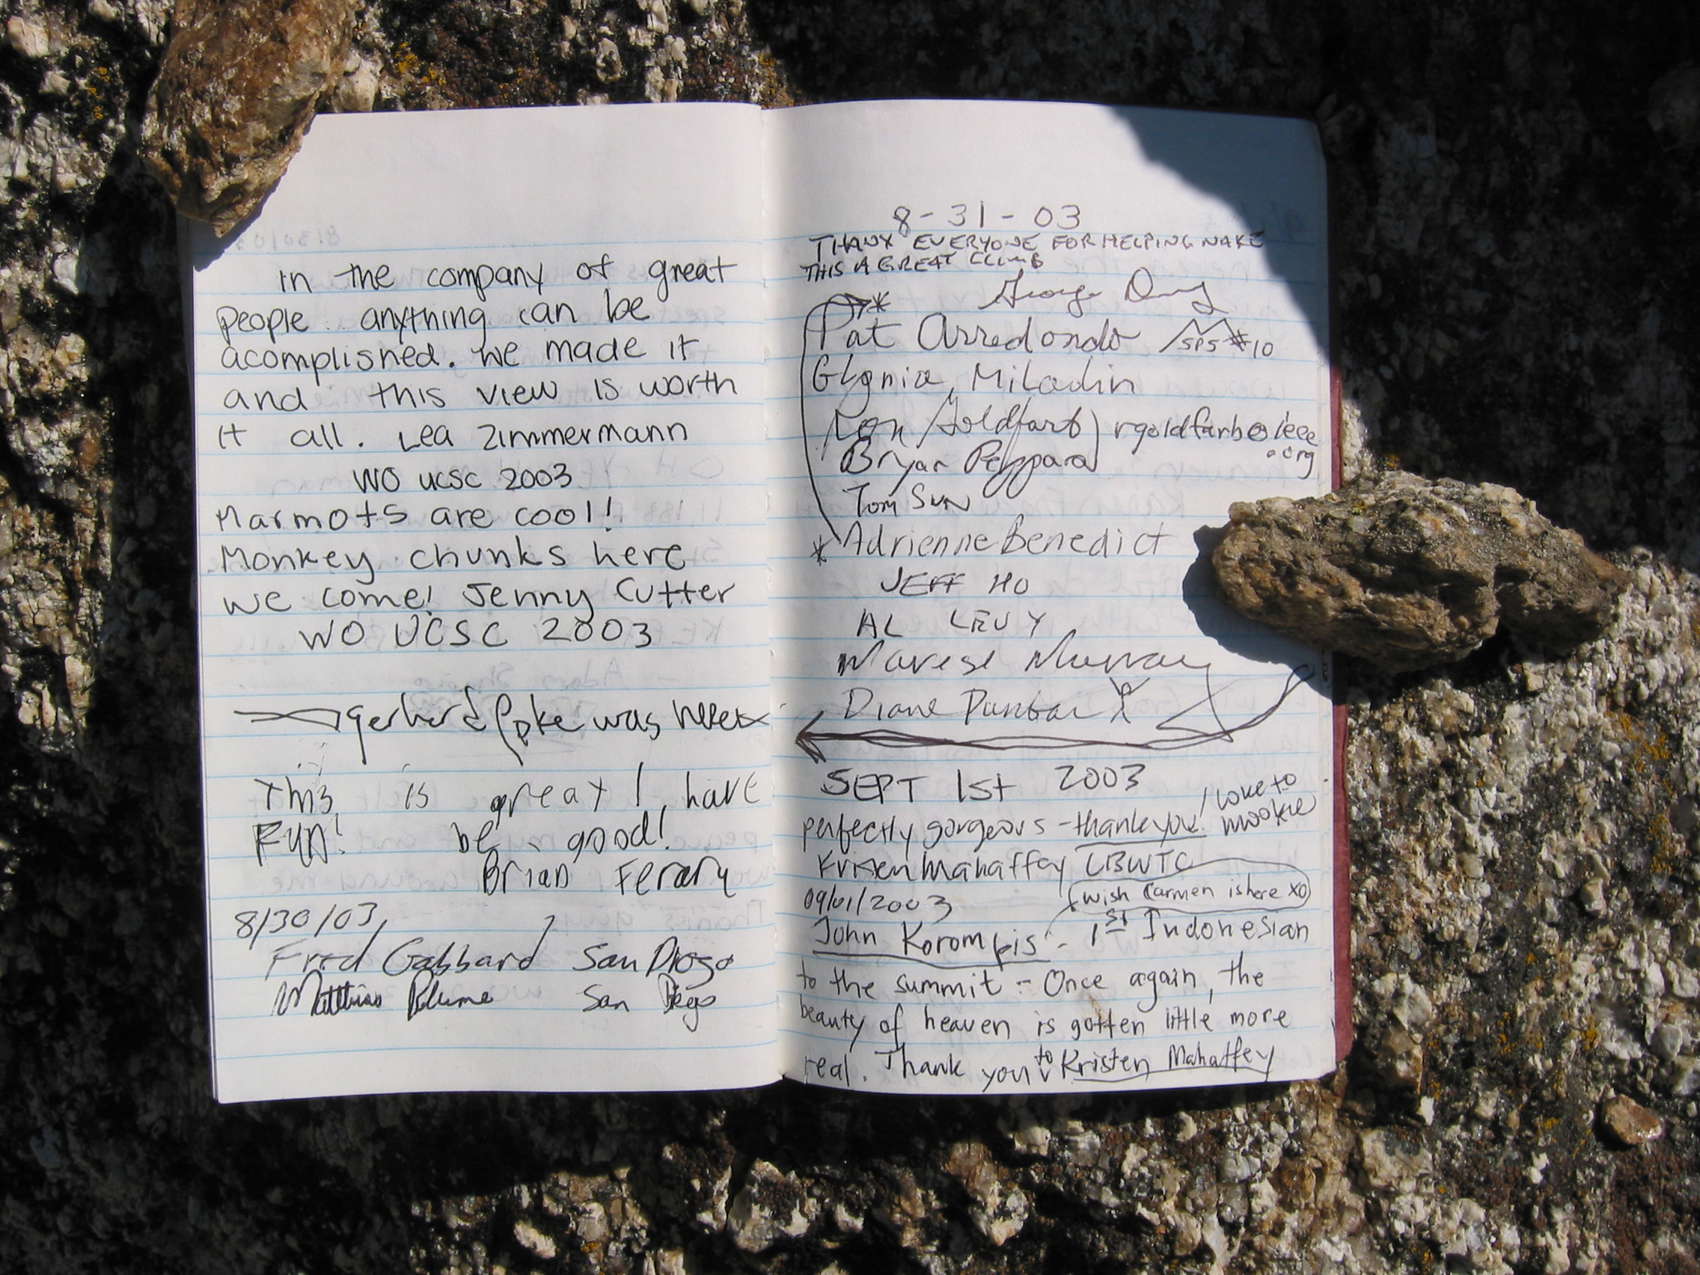 In the company of great
people anything can be
acomplished. We made it
and this view is worth
it all. Lea Zimmermann
WO UCSC 2003
Marmots are cool!
Monkey chunks here
we come! Jenny Cutter
WO UCSC 2003
gerhard was here
This is great!, have
Fun! be good!
Brian
8/30/03,
Fred Gabbard San Diego
Matthias Blume San Diego
8-31-03
THANX EVERYONE FOR HELPING MAKE
THIS A GREAT CLIMB
George
* Pat Arredondo SPS #10
Glynia Miladin
Ron Goldfarb) rgoldfarb@ieee
.org
Bryan
Tom SUN
* Adrienne Benedict
JEFF HO
AL LEVY
Marese Murray
Diane Dunbar
SEPT 1st 2003
perfectly gorgeous - thank you! love to
mookie
Kristen Mahaffay LBWTC
09/01/2003 (wish Carmen is here xo)
John Korompis - 1st Indonesian
to the summit - Once again, the
beauty of heaven is gotten little more
real. Thank you to Kristen Mahaffey